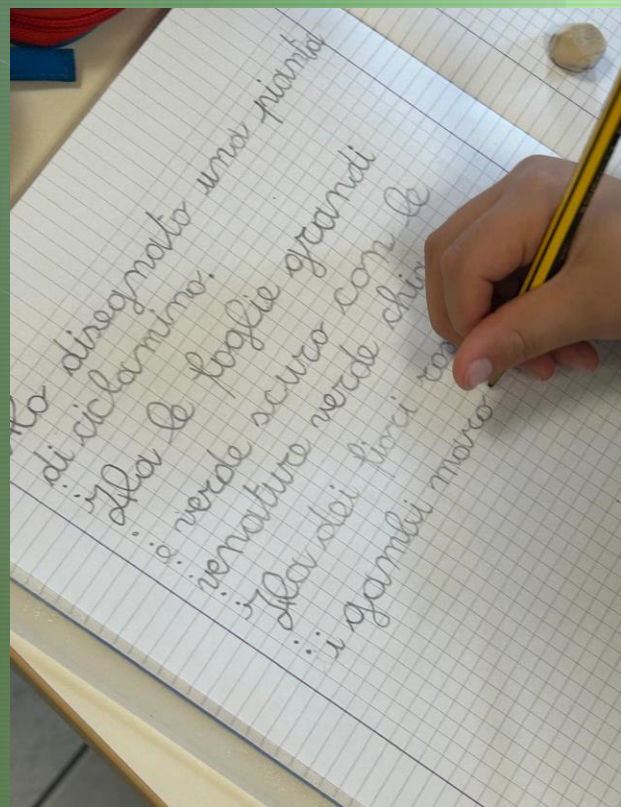 Ho disegnato una pianta
di ciclamino.
Ha le foglie grandi
e verde scuro con le
venature verde
Ha dei fiori
i gambi